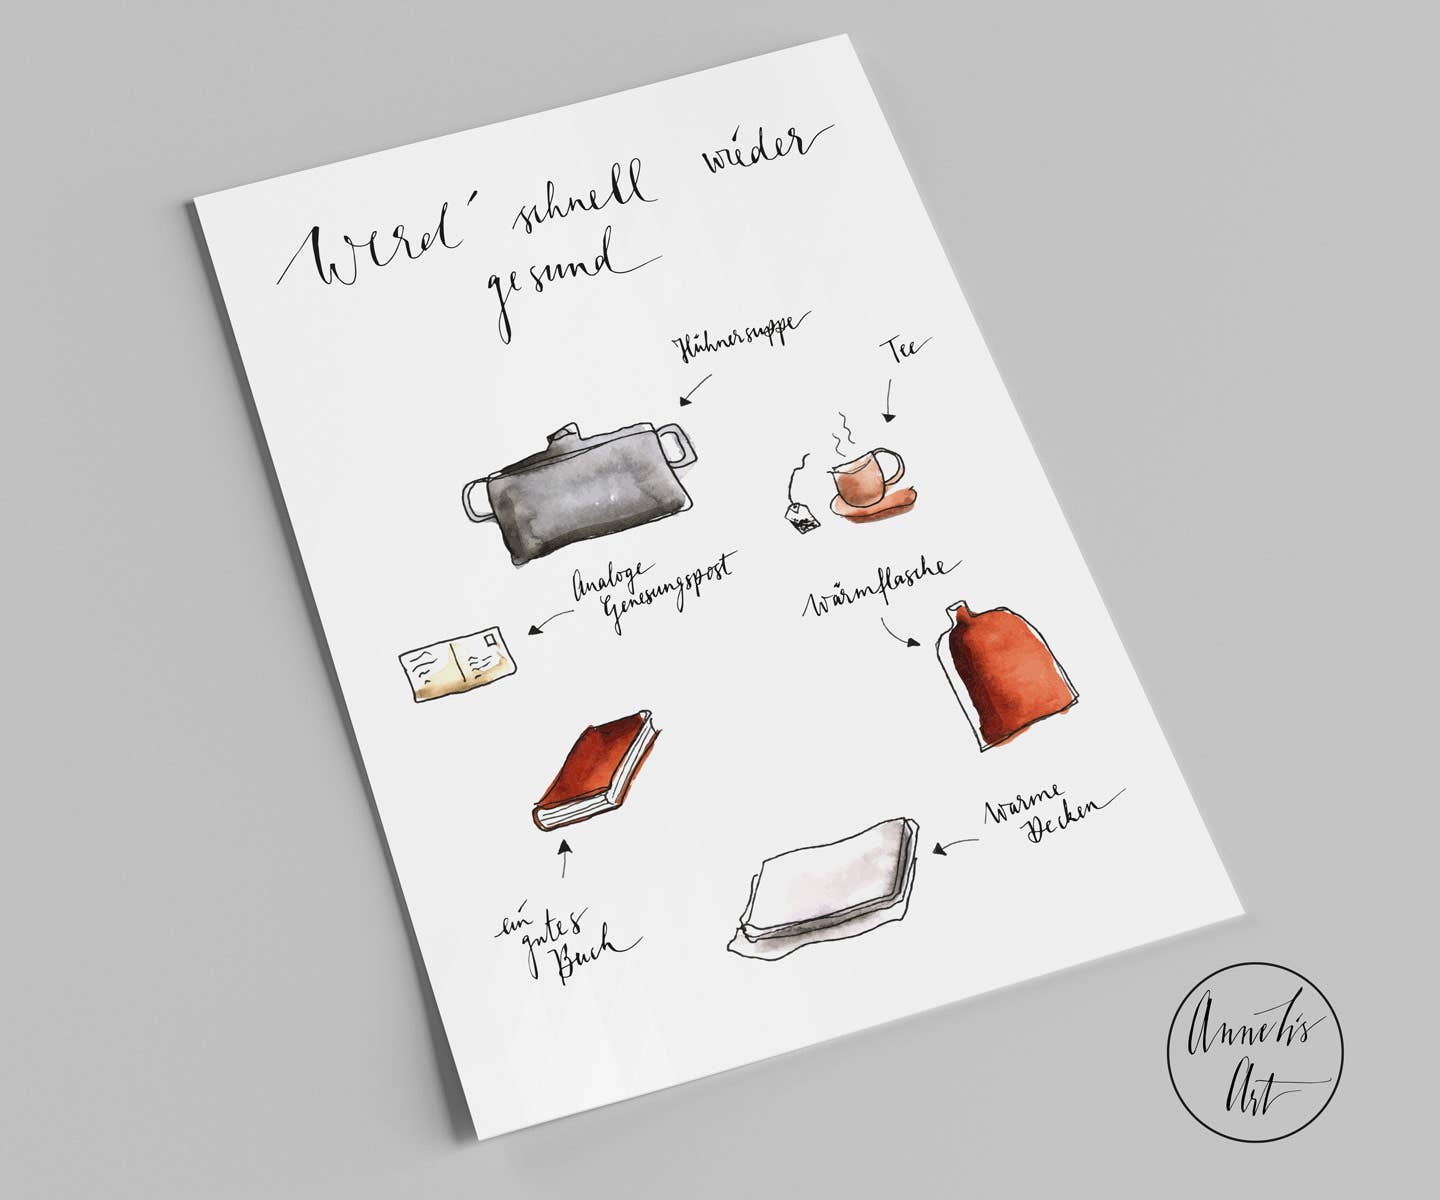 Werd' schnell wieder
gesund
Hühnersuppe
Tee
Analoge
Genesungspost
Wärmflasche
ein
gutes
Buch
Warme
Decken
Anneli's
Art